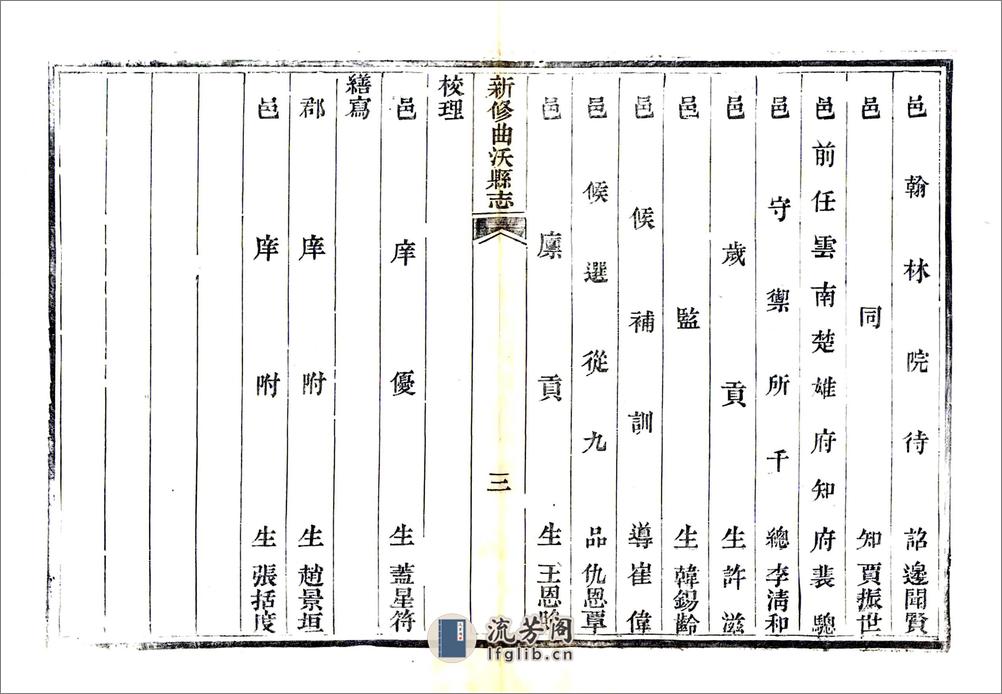 邑翰林院待詔邊聞賢
邑同知賈振世
邑前任雲南楚雄府知府裴驄
邑守禦所千總李清和
邑歲貢生許滋
邑監生韓錫齡
邑候補訓導崔偉
邑候選從九品仇恩覃
邑廩貢生王恩
新修曲沃縣志
三
校理
邑庠優生蓋星符
繕寫
郡庠附生趙景垣
邑庠附生張括度
流芳阁
lfglib.cn